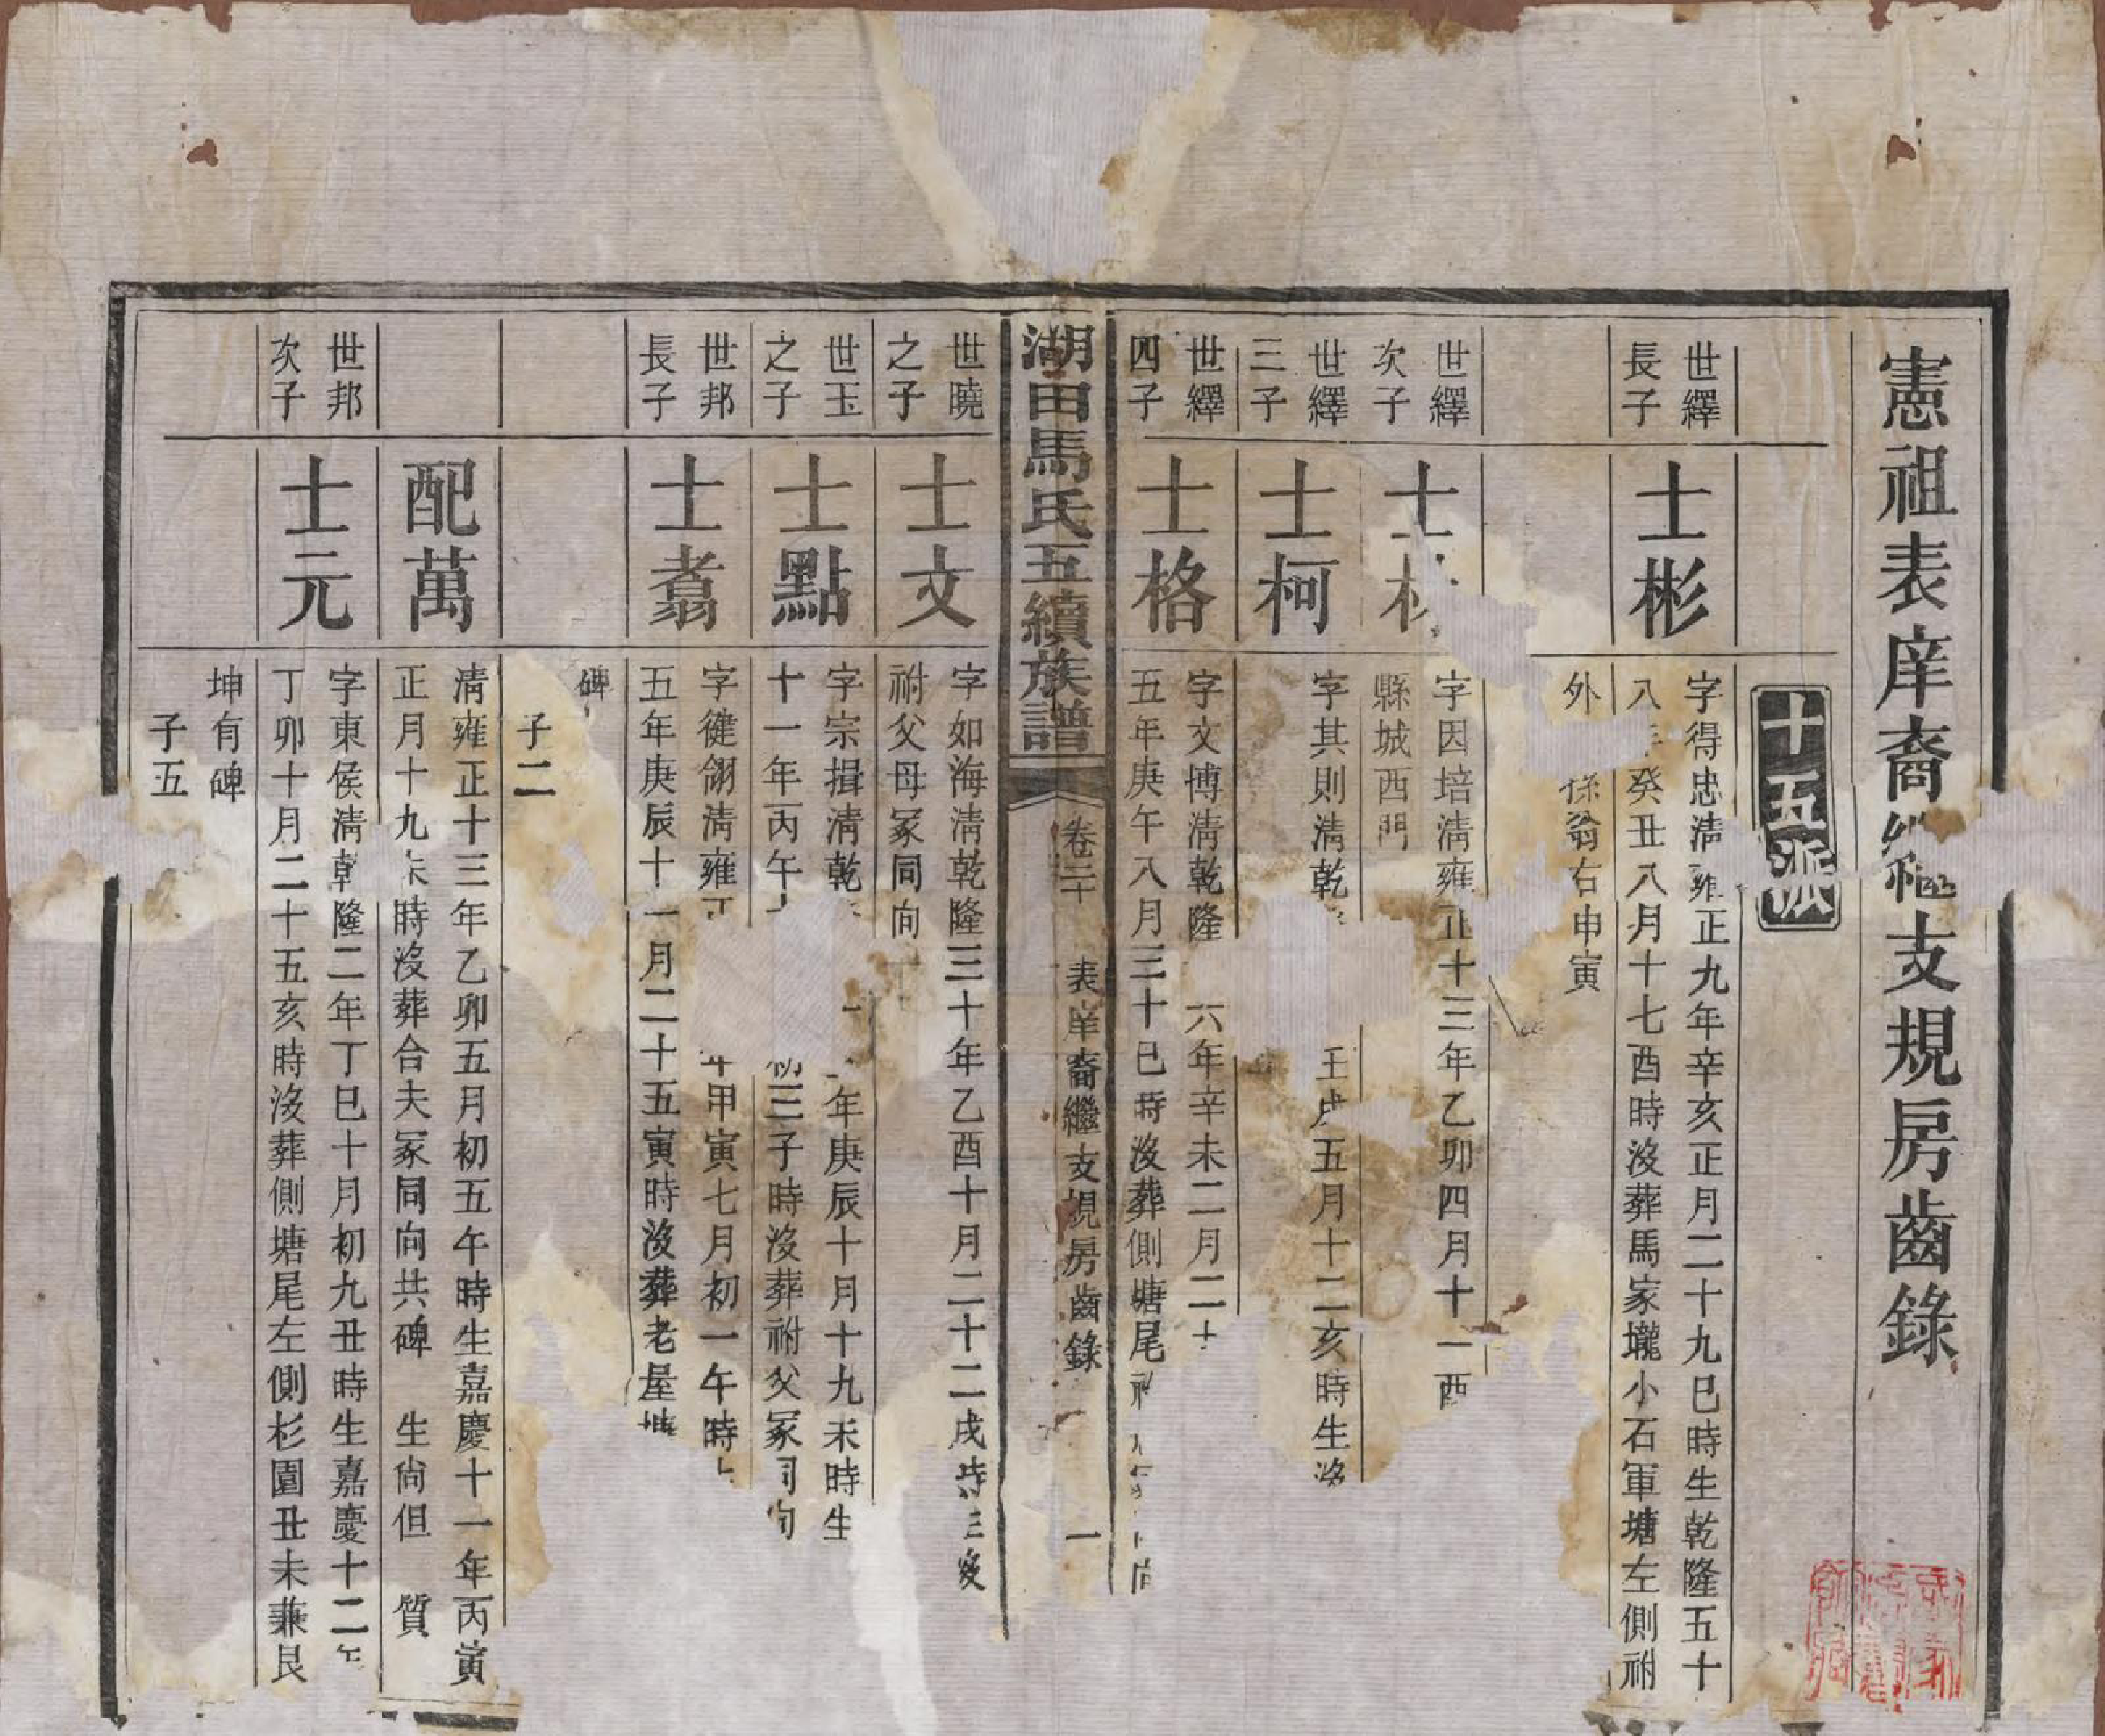 憲祖表庠裔繼支規房齒錄
十五派
世繹
長子
士彬
字得忠清雍正九年辛亥正月二十九巳時生乾隆五十
八年癸丑八月十七酉時沒葬馬家壠小石軍塘左側祔
外 孫翁右申寅
世繹
次子
士
字因培清雍正十三年乙卯四月十一酉
縣城西門
世繹
三子
士柯
字其則清乾 壬戌五月十二亥時生沒
世繹
四子
士格
字文博清乾隆 六年辛未二月二十
五年庚午八月三十巳時沒葬側塘尾
湖田馬氏五續族譜
卷二十 表庠裔繼支規房齒錄 一
世曉
之子
士文
字如海清乾隆三十年乙酉十月二十二戌時 沒
祔父母冢同向
世玉
之子
士點
字宗揖清乾 年庚辰十月十九未時生
十一年丙午 初三子時沒葬祔父冢同向
世邦
長子
士翥
字健翎清雍正 年甲寅七月初一午時
五年庚辰十一月二十五寅時沒葬老屋塘
碑
子二
配萬
清雍正十三年乙卯五月初五午時生嘉慶十一年丙寅
正月十九未時沒葬合夫冢同向共碑 生尚但 質
世邦
次子
士元
字東侯清乾隆二年丁巳十月初九丑時生嘉慶十二年
丁卯十月二十五亥時沒葬側塘尾左側杉園丑未兼艮
坤有碑
子五